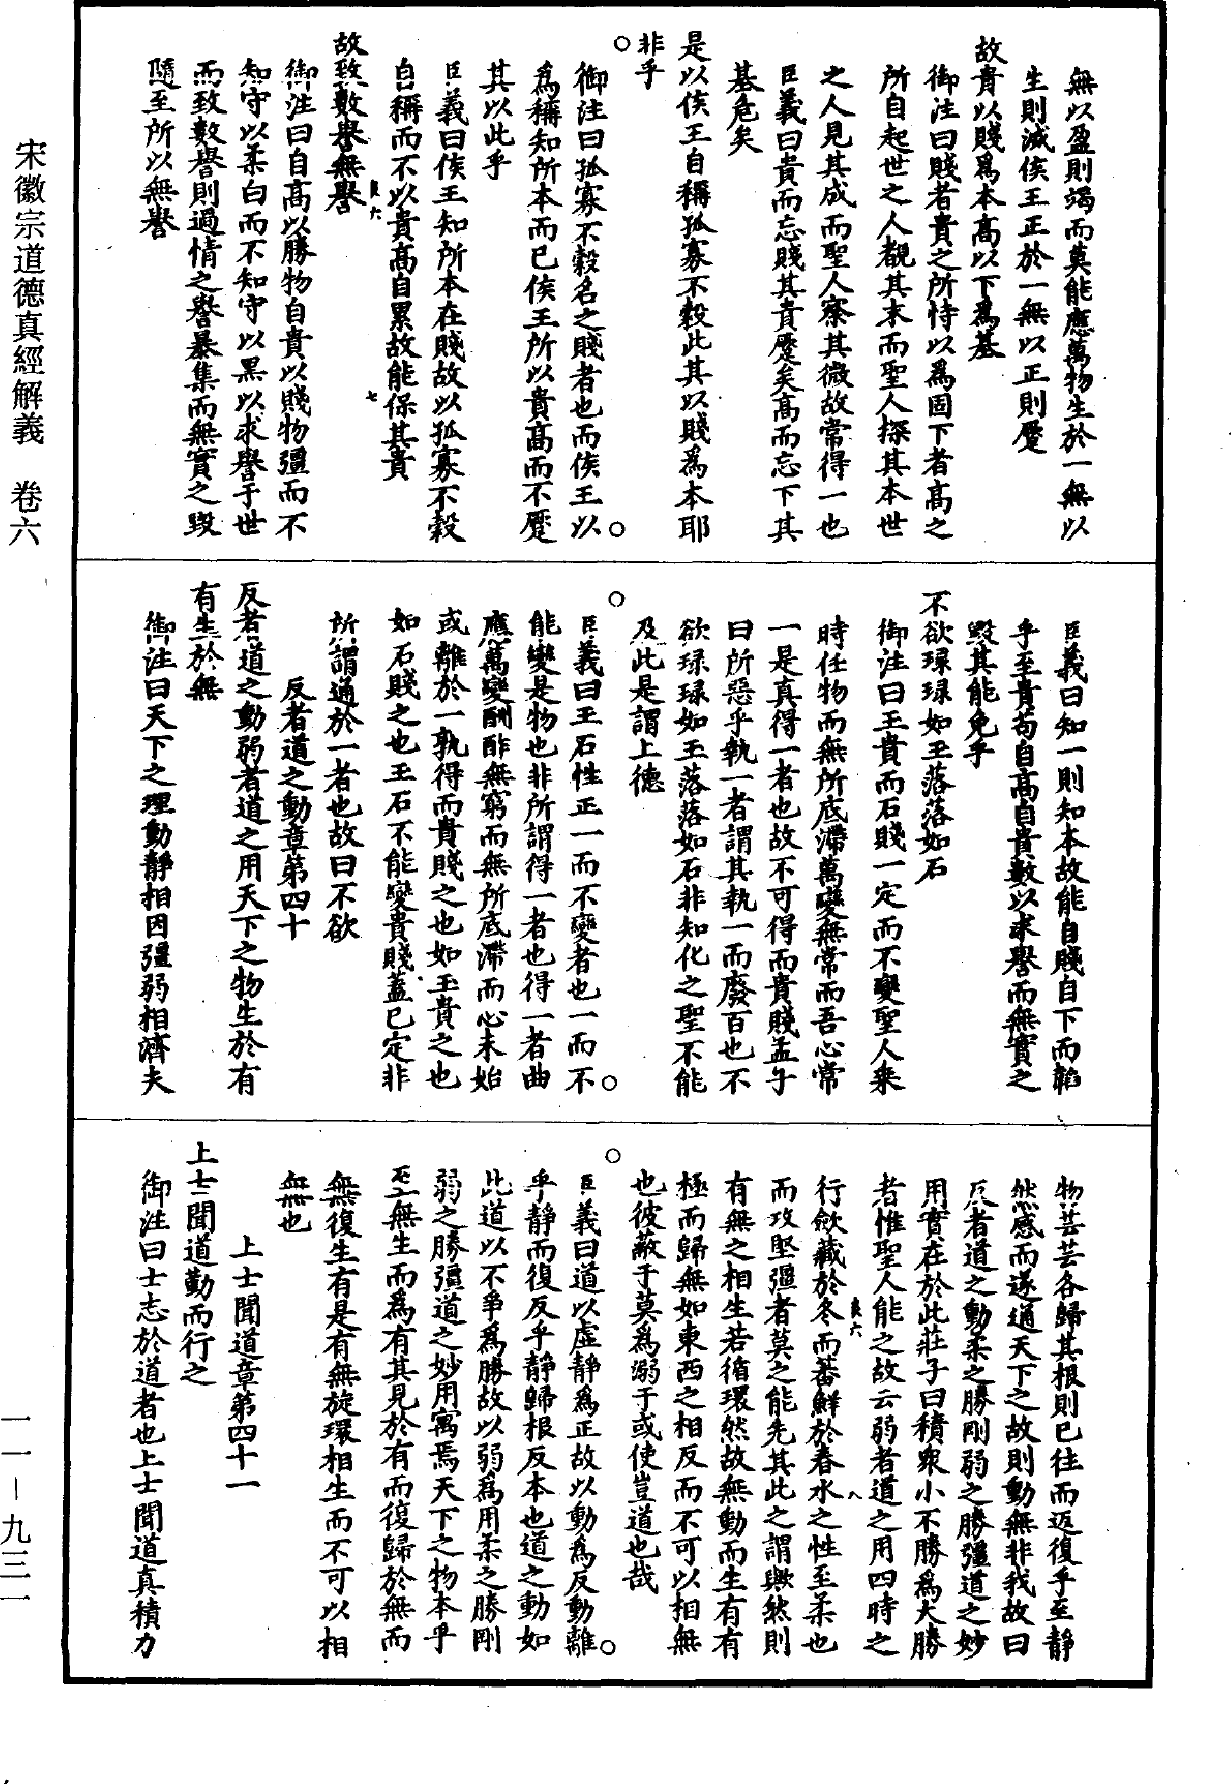 宋徽宗道德真經解義　卷六
一一－九三一
無以盈則竭而莫能應萬物生於一無以
生則滅侯王正於一無以正則蹷
故貴以賤爲本高以下爲基
御注曰賤者貴之所恃以爲固下者高之
所自起世之人覩其末而聖人探其本世
之人見其成而聖人察其微故常得一也
臣義曰貴而忘賤其貴蹷矣高而忘下其
基危矣
是以侯王自稱孤寡不穀此其以賤爲本耶
非乎
御注曰孤寡不穀名之賤者也而侯王以
爲稱知所本而已侯王所以貴高而不蹷
其以此乎
臣義曰侯王知所本在賤故以孤寡不穀
自稱而不以貴高自累故能保其貴
七
故致數譽無譽
御注曰自高以勝物自貴以賤物彊而不
知守以柔白而不知守以黑以求譽于世
而致數譽則過情之譽暴集而無實之毀
隨至所以無譽
臣義曰知一則知本故能自賤自下而韜
乎至貴苟自高自貴數以求譽而無實之
毀其能免乎
不欲琭琭如玉落落如石
御注曰玉貴而石賤一定而不變聖人乘
時任物而無所底滯萬變無常而吾心常
一是真得一者也故不可得而貴賤孟子
曰所惡乎執一者謂其執一而廢百也不
欲琭琭如玉落落如石非知化之聖不能
及此是謂上德
臣義曰玉石性正一而不變者也一而不
能變是物也非所謂得一者也得一者曲
應萬變酬酢無窮而無所底滯而心未始
或離於一孰得而貴賤之也如玉貴之也
如石賤之也玉石不能變貴賤蓋已定非
所謂通於一者也故曰不欲
反者道之動章第四十
反者道之動弱者道之用天下之物生於有
有生於無
御注曰天下之理動靜相因彊弱相濟夫
物芸芸各歸其根則已往而返復乎至靜
然感而遂通天下之故則動無非我故曰
反者道之動柔之勝剛弱之勝彊道之妙
用實在於此莊子曰積衆小不勝爲大勝
者惟聖人能之故云弱者道之用四時之
八
行斂藏於冬而蕃鮮於春水之性至柔也
而攻堅彊者莫之能先其此之謂歟然則
有無之相生若循環然故無動而生有有
極而歸無如東西之相反而不可以相無
也彼蔽于莫爲溺于或使豈道也哉
臣義曰道以虛靜爲正故以動爲反動離
乎靜而復反乎靜歸根反本也道之動如
此道以不爭爲勝故以弱爲用柔之勝剛
弱之勝彊道之妙用寓焉天下之物本乎
至無生而爲有其見於有而復歸於無而
無復生有是有無旋環相生而不可以相
無也
上士聞道章第四十一
上士聞道勤而行之
御注曰士志於道者也上士聞道真積力